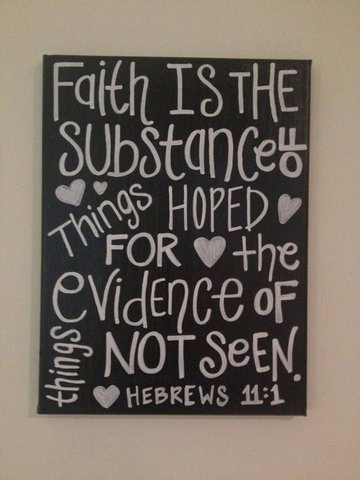 Faith IS THE
SUbstance OF
Things HOPED
FOR the
evidence OF
things NOT SeeN.
HEBREWS 11:1